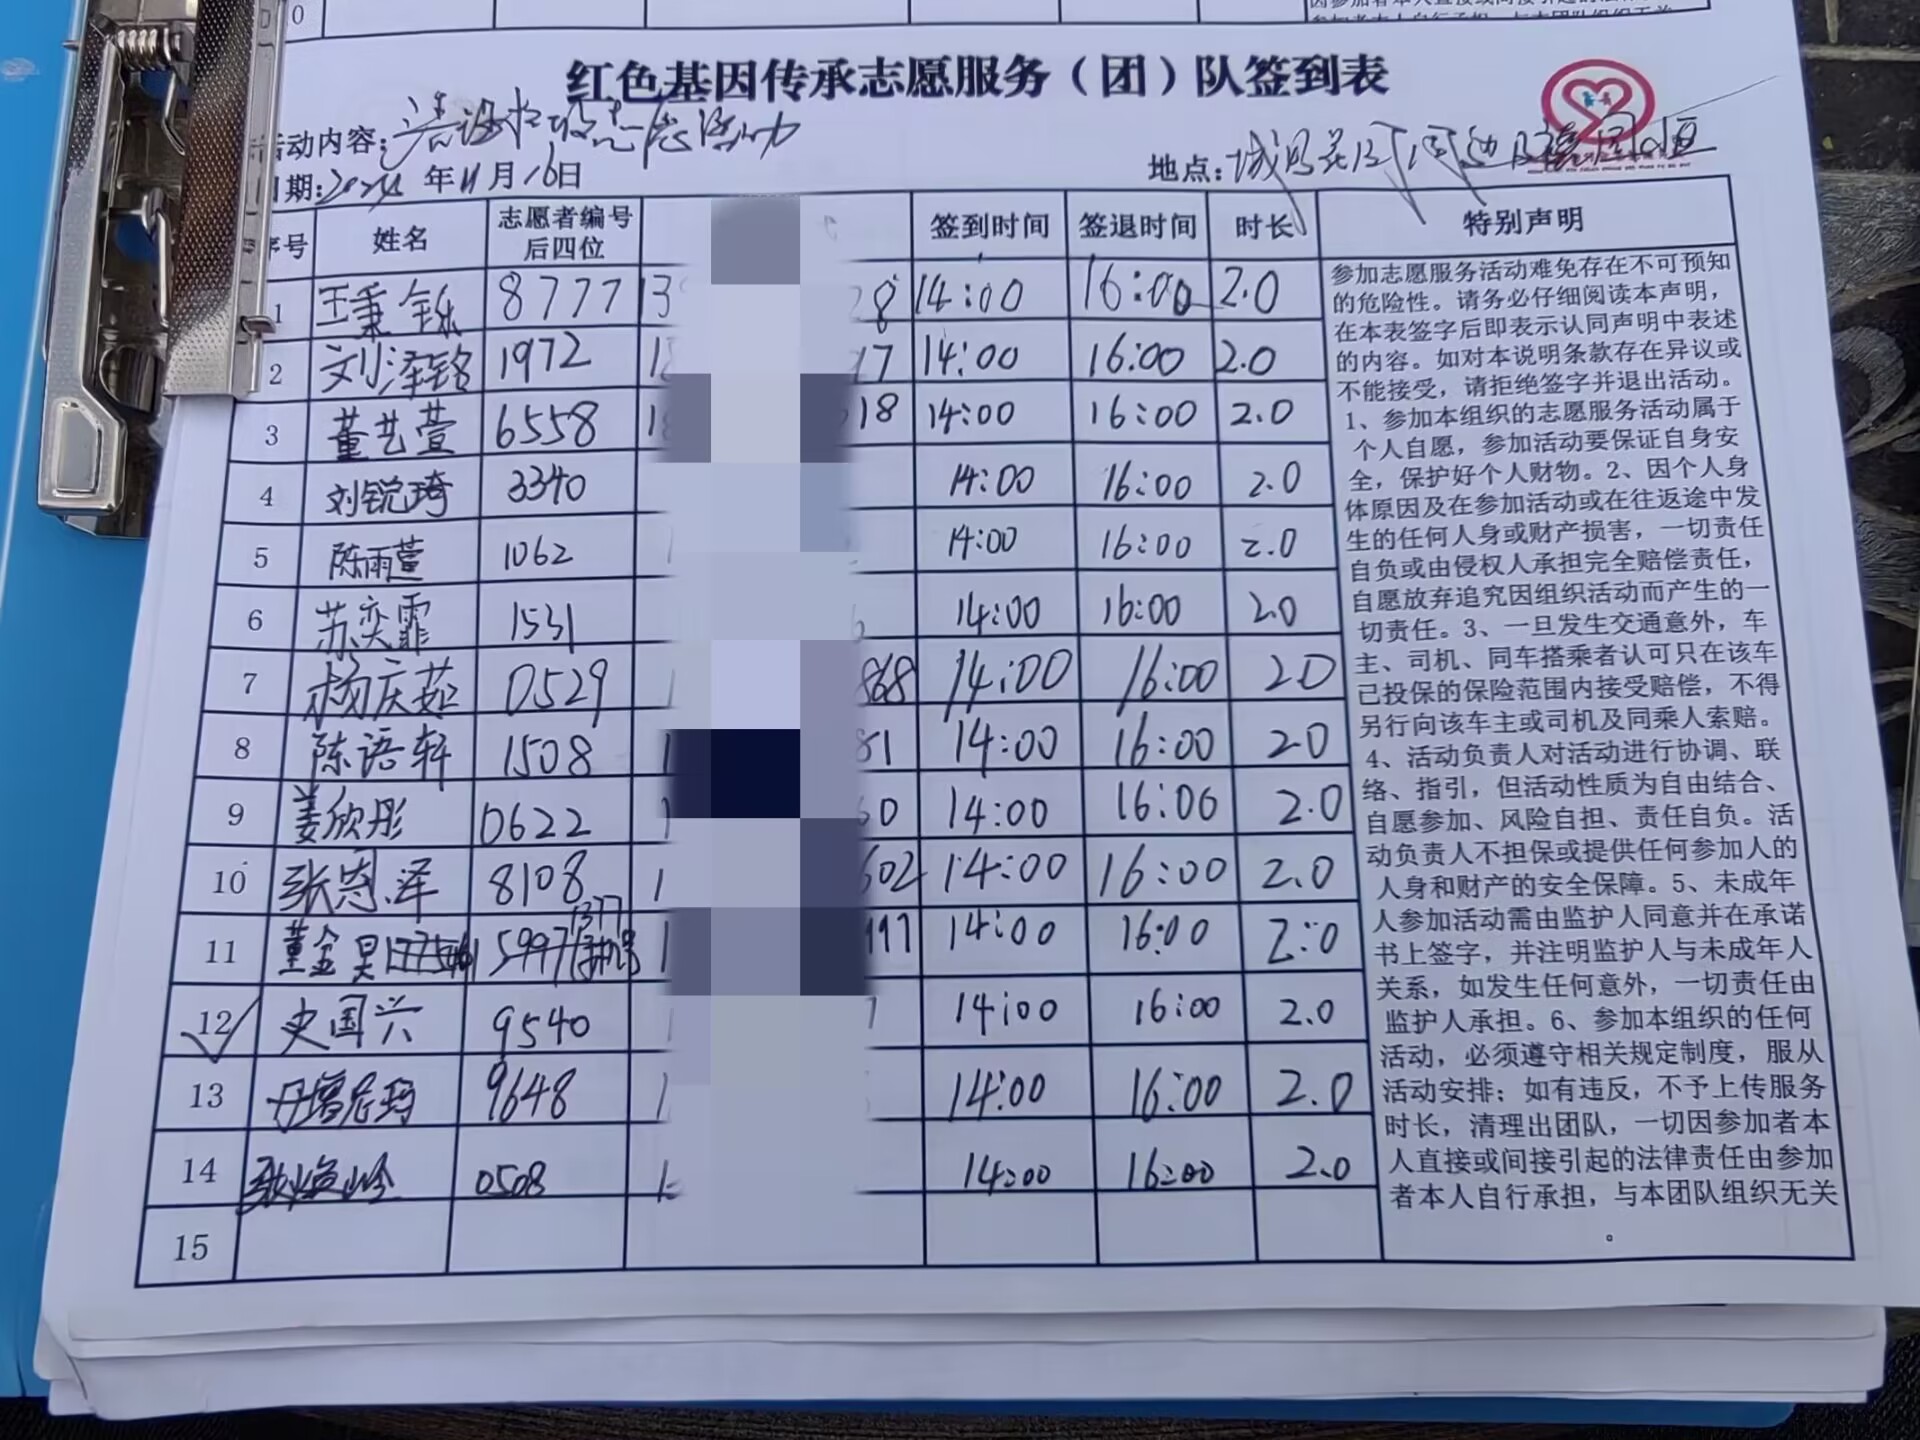 红色基因传承志愿服务（团）队签到表
活动内容:
日期: 年11月16日
地点:
序号 姓名 志愿者编号后四位 签到时间 签退时间 时长 特别声明
1 王秉铄 8777 13 28 14:00 16:00 2.0
2 刘泽铭 1972 17 14:00 16:00 2.0
3 董艺萱 6558 18 618 14:00 16:00 2.0
4 刘锐琦 3340 14:00 16:00 2.0
5 陈雨萱 1062 14:00 16:00 2.0
6 苏奕霏 1531 14:00 16:00 2.0
7 杨庆茹 0529 1 868 14:00 16:00 2.0
8 陈语轩 1508 1 81 14:00 16:00 2.0
9 姜欣彤 0622 1 60 14:00 16:00 2.0
10 张恩泽 8108 1 602 14:00 16:00 2.0
11 董金昊 5997 1377 1 997 14:00 16:00 2.0
12 史国兴 9540 14:00 16:00 2.0
13 9648 1 14:00 16:00 2.0
14 0508 14:00 16:00 2.0
15
参加志愿服务活动难免存在不可预知
的危险性。请务必仔细阅读本声明，
在本表签字后即表示认同声明中表述
的内容。如对本说明条款存在异议或
不能接受，请拒绝签字并退出活动。
1、参加本组织的志愿服务活动属于
个人自愿，参加活动要保证自身安
全，保护好个人财物。2、因个人身
体原因及在参加活动或在往返途中发
生的任何人身或财产损害，一切责任
自负或由侵权人承担完全赔偿责任，
自愿放弃追究因组织活动而产生的一
切责任。3、一旦发生交通意外，车
主、司机、同车搭乘者认可只在该车
已投保的保险范围内接受赔偿，不得
另行向该车主或司机及同乘人索赔。
4、活动负责人对活动进行协调、联
络、指引，但活动性质为自由结合、
自愿参加、风险自担、责任自负。活
动负责人不担保或提供任何参加人的
人身和财产的安全保障。5、未成年
人参加活动需由监护人同意并在承诺
书上签字，并注明监护人与未成年人
关系，如发生任何意外，一切责任由
监护人承担。6、参加本组织的任何
活动，必须遵守相关规定制度，服从
活动安排；如有违反，不予上传服务
时长，清理出团队，一切因参加者本
人直接或间接引起的法律责任由参加
者本人自行承担，与本团队组织无关
。